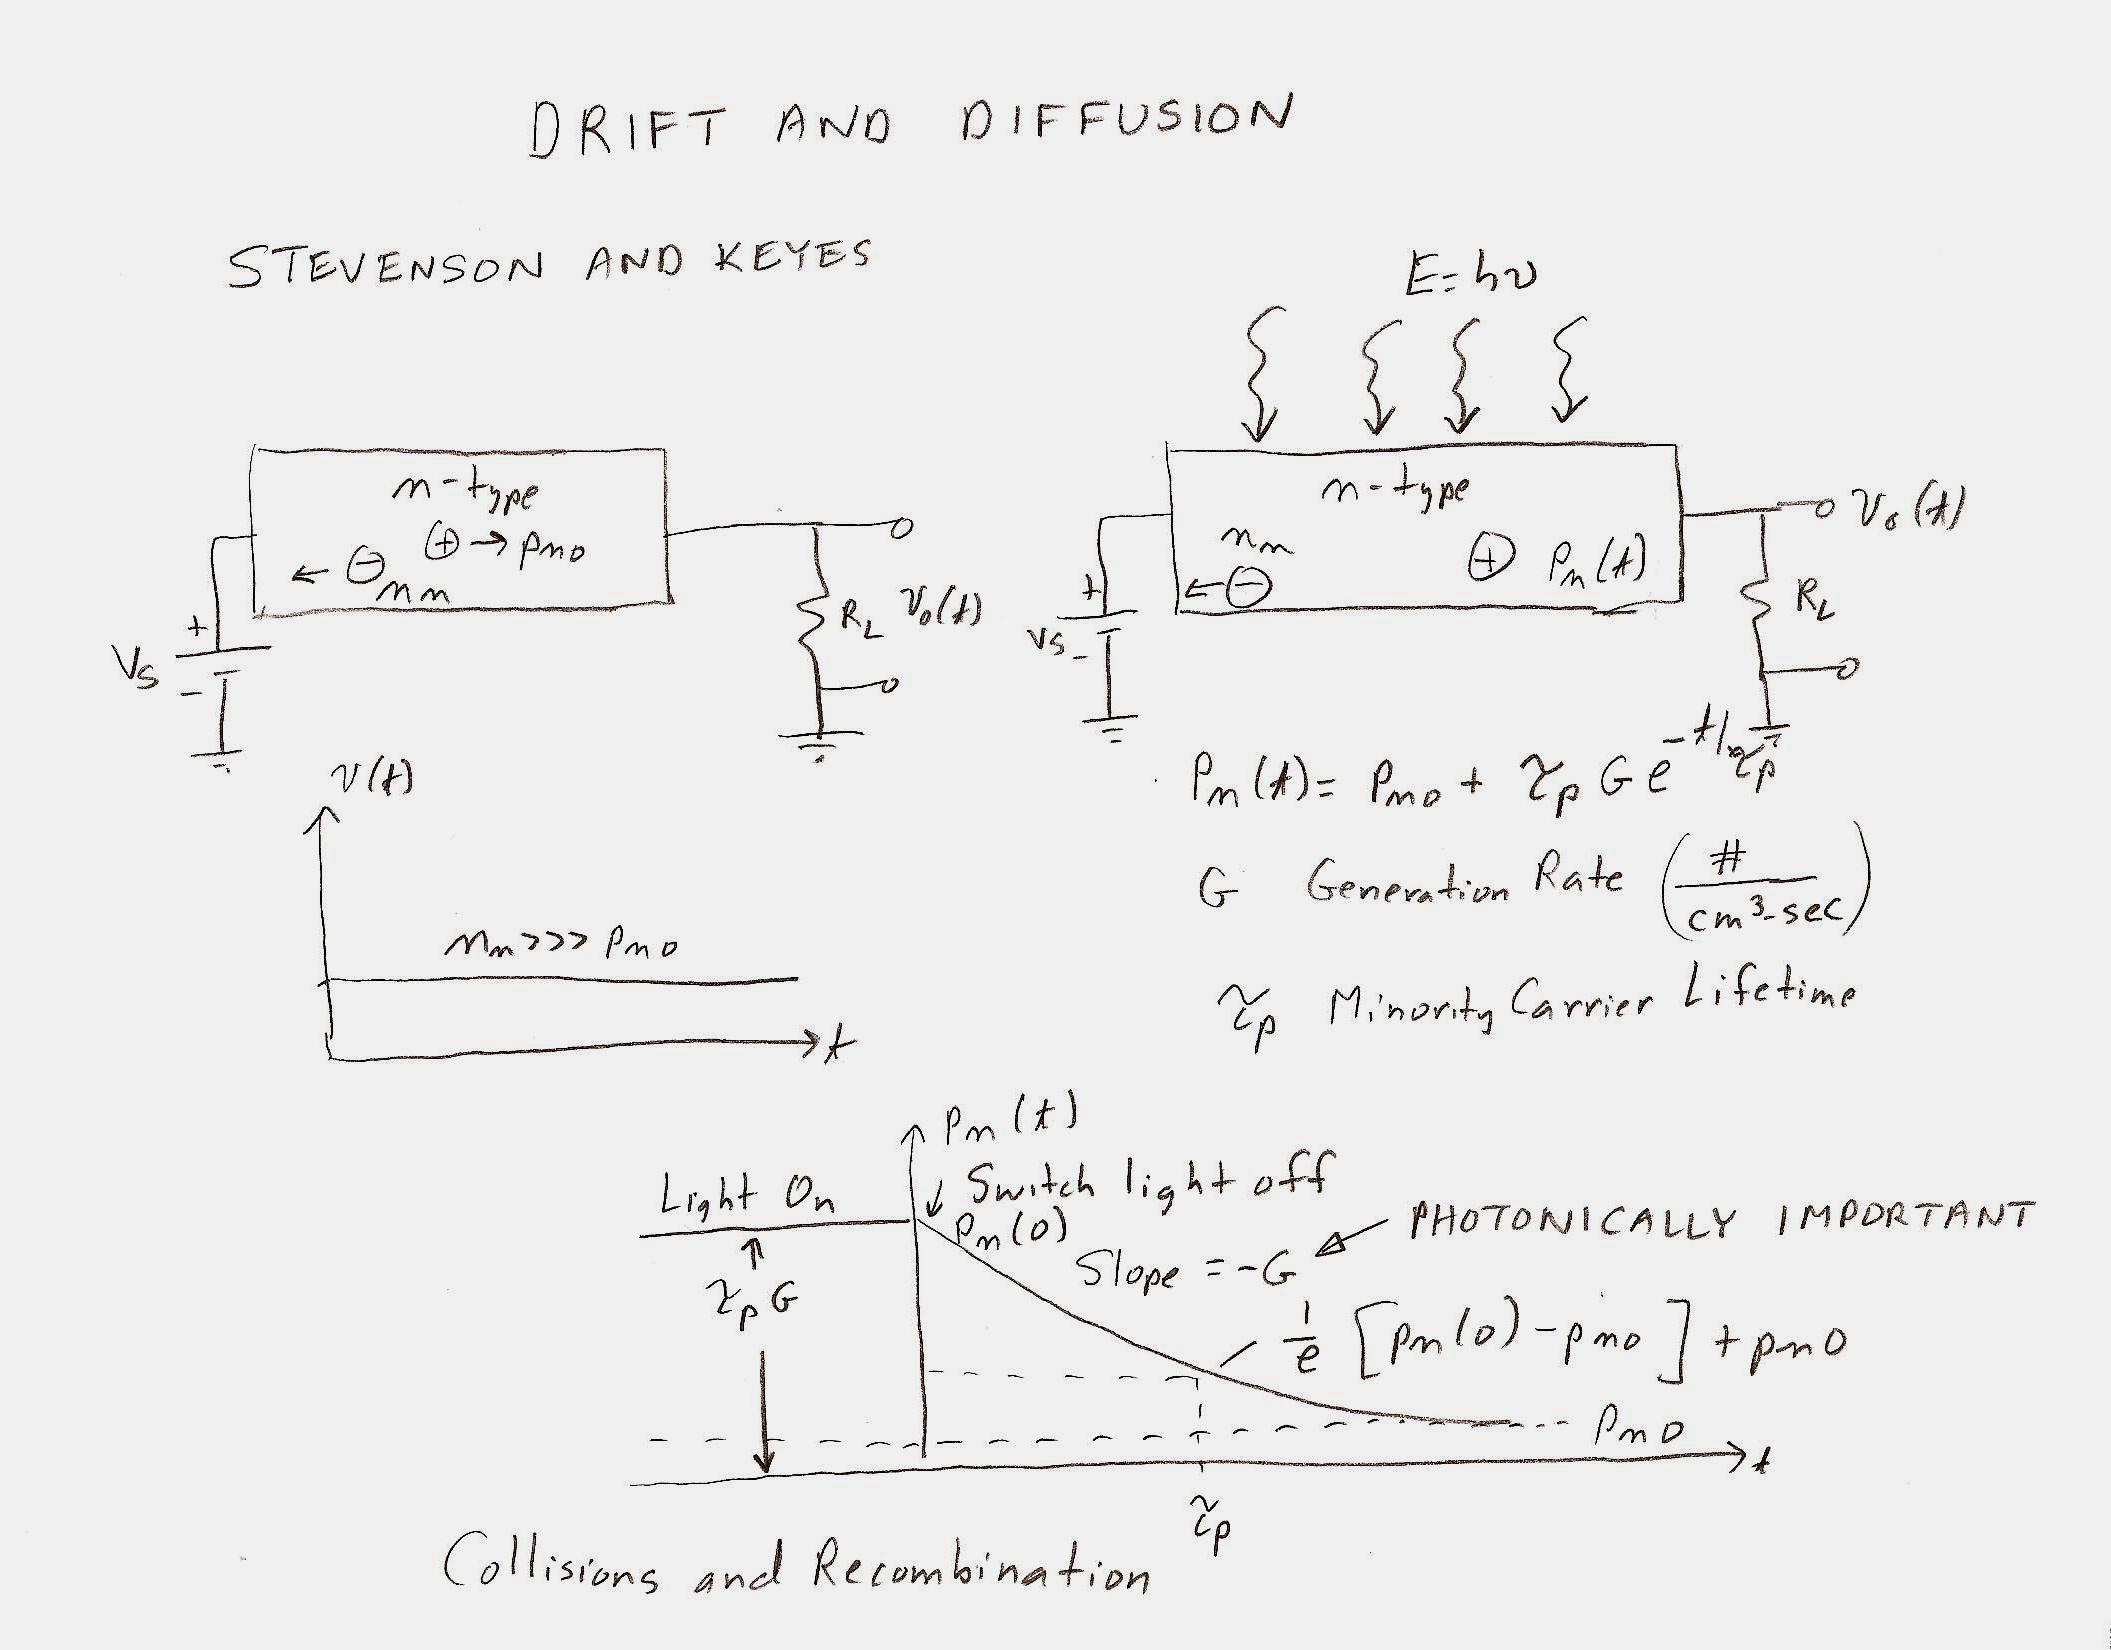 DRIFT AND DIFFUSION
STEVENSON AND KEYES
n-type
⊕→ pno
← ⊖ nn
+
Vs
-
RL vo(t)
E=hν
n-type
nn
←⊖
⊕ Pn(t)
+
Vs
-
vo(t)
RL
v(t)
nn>>> Pno
t
Pn(t)= Pno + τp G e^-t/τp
G Generation Rate (#/cm³-sec)
τp Minority Carrier Lifetime
Pn(t)
Light On
Switch light off
Pn(0)
τp G
Slope = -G
PHOTONICALLY IMPORTANT
1/e [pn(0) - pno] + pno
Pno
t
τp
Collisions and Recombination